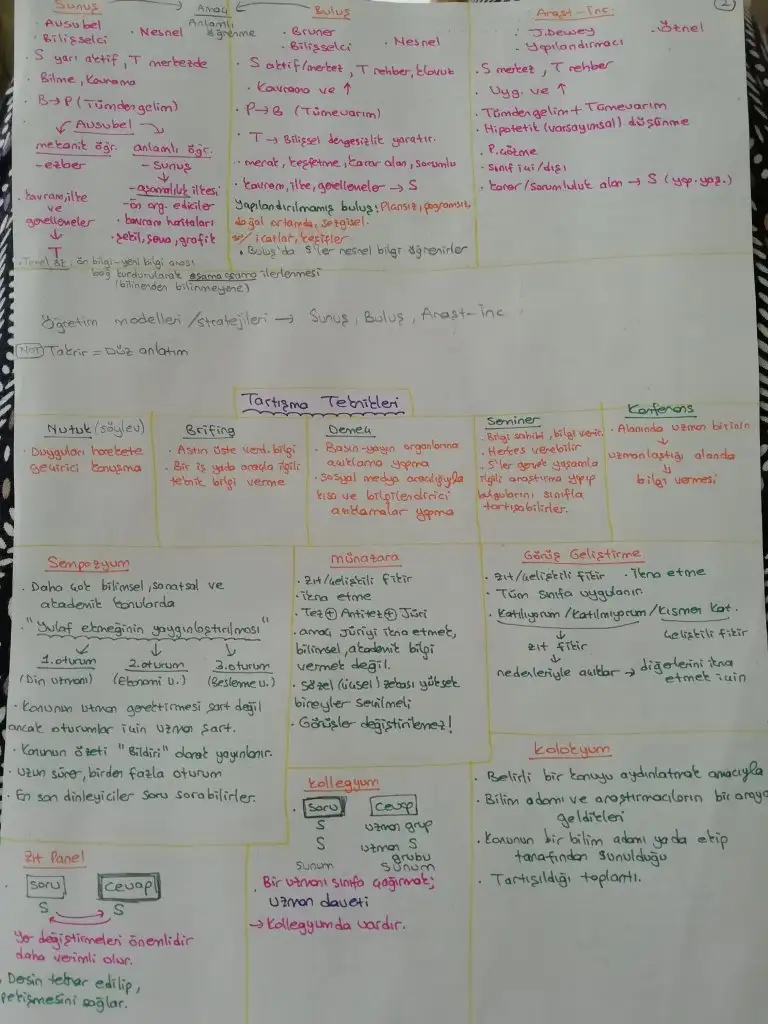 Sunuş
Amaç
Anlamlı
öğrenme
Buluş
Araşt-İnc.
2
· Ausubel
· Bilişselci
· Nesnel
· S yarı aktif, T merkezde
· Bilme, Kavrama
· B→P (Tümdengelim)
Ausubel
mekanik öğr.
anlamlı öğr.
- ezber
- Sunuş
- aşamalılık ilkesi
- ön org. ediciler
· kavram haritaları
· şekil, şema, grafik
· kavram, ilke
ve
genellemeler
T
· Bruner
· Bilişselci
· Nesnel
· S aktif/merkez, T rehber, klavuz
· Kavrama ve ↑
· P→B (Tümevarım)
· T → Bilişsel dengesizlik yaratır.
· merak, keşfetme, karar alan, sorumlu
· kavram, ilke, genellemeler → S
Yapılandırılmamış buluş: Plansız, programsız,
doğal ortamda, sezgisel.
icatlar, keşifler
· Buluş'da S'ler nesnel bilgi öğrenirler
· J. Dewey
· Yapılandırmacı
· Öznel
· S merkez, T rehber
· Uyg. ve ↑
· Tümdengelim + Tümevarım
· Hipotetik (varsayımsal) düşünme
· P. Çözme
· Sınıf içi/dışı
· karar/sorumluluk alan → S (yap. yaş.)
· Temel öz. ön bilgi-yeni bilgi arası
bağ kurdurularak aşama aşama ilerlenmesi
(bilinenden bilinmeyene)
Öğretim modelleri/stratejileri → Sunuş, Buluş, Araşt-İnc
NOT Takrir = Düz anlatım
Tartışma Teknikleri
Nutuk (söylev)
· Duyguları harekete
geçirici konuşma
Brifing
· Astın üste verd. bilgi
· Bir iş yada araçla ilgili
teknik bilgi verme
Demeç
· Basın-yayın organlarına
açıklama yapma
· Sosyal medya aracılığıyla
kısa ve bilgilendirici
açıklamalar yapma
Seminer
· Bilgi sahibi, bilgi verir.
· Herkes verebilir
· S'ler gerçek yaşamla
ilgili araştırma yapıp
bulgularını sınıfla
tartışabilirler.
Konferans
· Alanında uzman birinin
uzmanlaştığı alanda
bilgi vermesi
Sempozyum
· Daha çok bilimsel, sanatsal ve
akademik konularda
· "Yulaf ekmeğinin yaygınlaştırılması"
1. oturum
2. oturum
3. oturum
(Din uzmanı)
(Ekonomi u.)
(Besleme u.)
· Konunun uzman gerektirmesi şart değil
ancak oturumlar için uzman şart.
· Konunun özeti "Bildiri" olarak yayınlanır.
· uzun sürer, birden fazla oturum
· En son dinleyiciler soru sorabilirler.
münazara
· zıt/çelişkili fikir
· ikna etme
· Tez + Antitez + Jüri
· amaç jüriyi ikna etmek,
bilimsel, akademik bilgi
vermek değil.
· sözel (dilsel) zekası yüksek
bireyler seçilmeli
· Görüşler değiştirilemez!
Görüş Geliştirme
· zıt/çelişkili fikir · ikna etme
· Tüm sınıfa uygulanır.
· Katılıyorum/Katılmıyorum/Kısmen Kat.
zıt fikir
çelişkili fikir
nedenleriyle açıklar → diğerlerini ikna
etmek için
Zıt Panel
· soru
cevap
S
S
Yer değiştirmeleri önemlidir
daha verimli olur.
· Dersin tekrar edilip,
pekişmesini sağlar.
Kollegyum
· soru
cevap
S
uzman grup
S
uzman S
grubu
sunum
sunum
· Bir uzmanı sınıfa çağırmak;
uzman daveti
→ kollegyumda vardır.
Kolokyum
· Belirli bir konuyu aydınlatmak amacıyla
· Bilim adamı ve araştırmacıların bir araya
geldikleri
· Konunun bir bilim adamı yada ekip
tarafından sunulduğu
· Tartışıldığı toplantı.